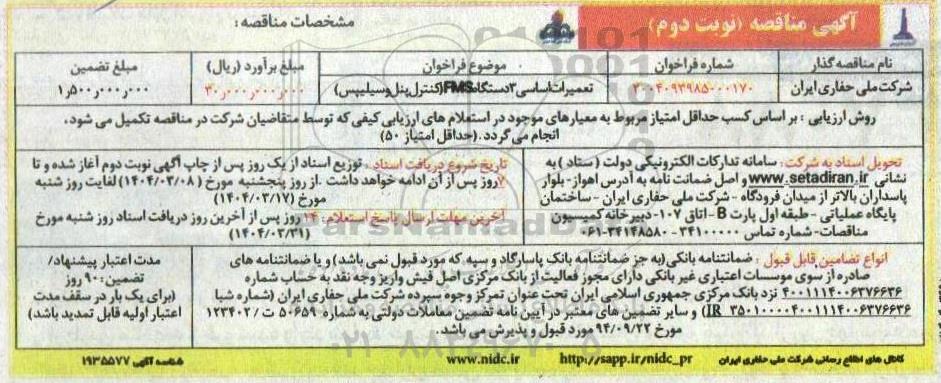 آگهی مناقصه (نوبت دوم)
مشخصات مناقصه:
نام مناقصه گذار
شماره فراخوان
موضوع فراخوان
مبلغ برآورد (ریال)
مبلغ تضمین
شرکت ملی حفاری ایران
۲۰۰۴۰۹۳۹۸۵۰۰۰۱۷۰
تعمیرات اساسی ۳ دستگاه FMS (کنترل پنل وسیلیپس)
۳۰٫۰۰۰٫۰۰۰٫۰۰۰
۱٫۵۰۰٫۰۰۰٫۰۰۰
روش ارزیابی : بر اساس کسب حداقل امتیاز مربوط به معیارهای موجود در استعلام های ارزیابی کیفی که توسط متقاضیان شرکت در مناقصه تکمیل می شود،
انجام می گردد. (حداقل امتیاز ۵۰)
تحویل اسناد به شرکت: سامانه تدارکات الکترونیکی دولت (ستاد) به
نشانی www.setadiran.ir و اصل ضمانت نامه به آدرس اهواز- بلوار
پاسداران بالاتر از میدان فرودگاه - شرکت ملی حفاری ایران - ساختمان
پایگاه عملیاتی - طبقه اول پارت B - اتاق ۱۰۷- دبیرخانه کمیسیون
مناقصات- شماره تماس ۳۴۱۰۰۰۰۰ - ۳۴۱۴۸۵۸۰-۰۶۱
تاریخ شروع دریافت اسناد : توزیع اسناد از یک روز پس از چاپ آگهی نوبت دوم آغاز شده و تا
۷ روز پس از آن ادامه خواهد داشت .از روز پنجشنبه مورخ (۱۴۰۴/۰۳/۰۸) لغایت روز شنبه
مورخ (۱۴۰۴/۰۳/۱۷)
آخرین مهلت ارسال پاسخ استعلام: ۱۴ روز پس از آخرین روز دریافت اسناد روز شنبه مورخ
(۱۴۰۴/۰۳/۳۱)
انواع تضامین قابل قبول : ضمانتنامه بانکی (به جز ضمانتنامه بانک پاسارگاد و سپه که مورد قبول نمی باشد) و یا ضمانتنامه های
صادره از سوی موسسات اعتباری غیر بانکی دارای مجوز فعالیت از بانک مرکزی اصل فیش واریز وجه نقد به حساب شماره
۴۰۰۱۱۱۴۰۰۶۳۷۶۶۳۶ نزد بانک مرکزی جمهوری اسلامی ایران تحت عنوان تمرکز وجوه سپرده شرکت ملی حفاری ایران (شماره شبا
IR ۳۵۰۱۰۰۰۰۴۰۰۱۱۱۴۰۰۶۳۷۶۶۳۶) و سایر تضمین های معتبر در آیین نامه تضمین معاملات دولتی به شماره ۵۰۶۵۹ ت / ۱۲۳۴۰۲
مورخ ۹۴/۰۹/۲۲ مورد قبول و پذیرش می باشد.
مدت اعتبار پیشنهاد/
تضمین: ۹۰ روز
(برای یک بار در سقف مدت
اعتبار اولیه قابل تمدید باشد)
کانال های اطلاع رسانی شرکت ملی حفاری ایران
http://sapp.ir/nidc_pr
www.nidc.ir
شناسه آگهی ۱۹۳۵۵۷۷